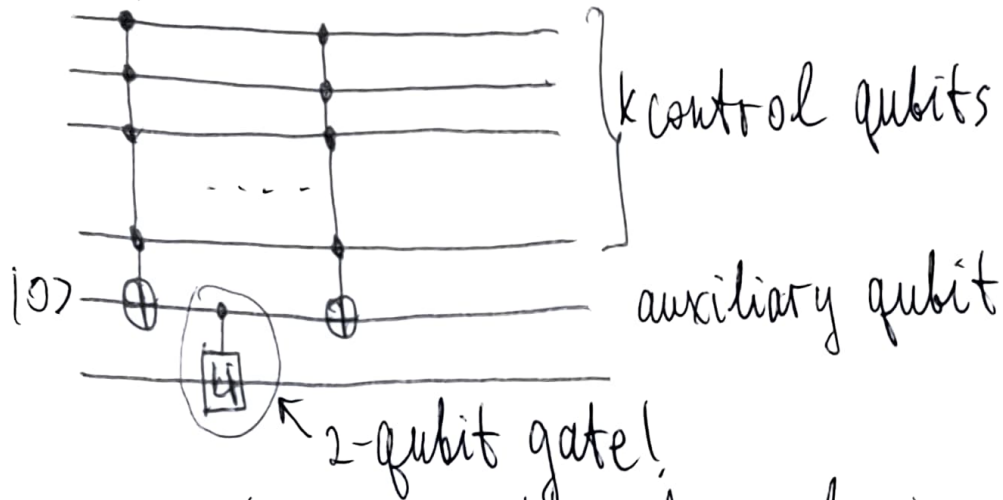 k control qubits
|0> auxiliary qubit
U
2-qubit gate!